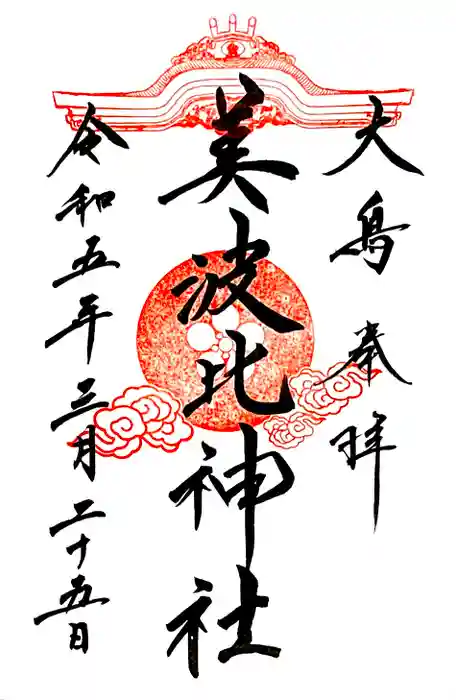 大鳥 奉拝
美波比神社
令和五年三月二十五日